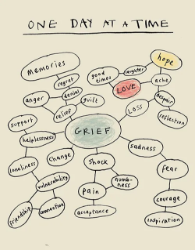 ONE DAY AT A TIME
Memories
hope
good times
regret
LOVE
ache
anger
denial
guilt
despair
relief
LOSS
reflection
support
helplessness
GRIEF
sadness
loneliness
change
Shock
fear
vulnerability
numbness
Pain
courage
friendship
connection
acceptance
inspiration